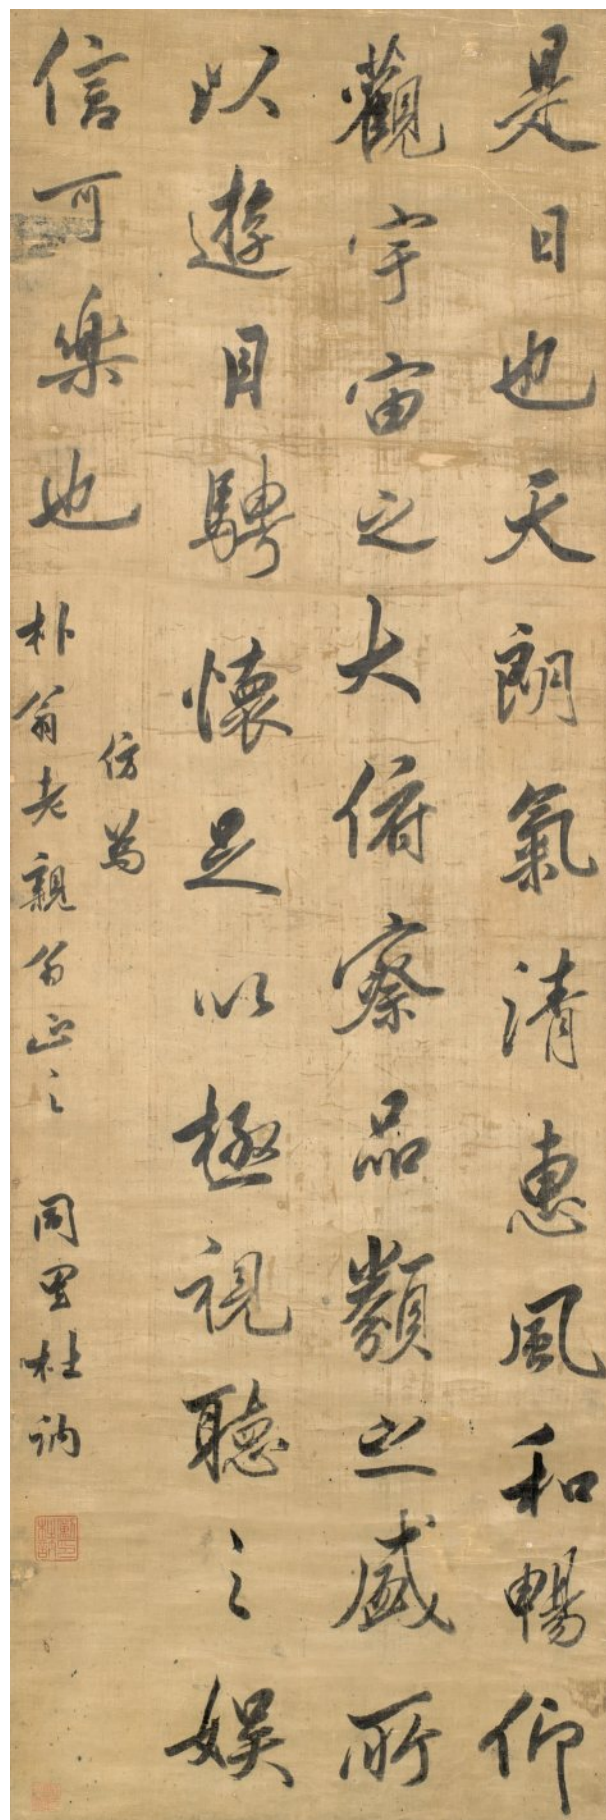 是日也天朗氣清惠風和暢仰
觀宇宙之大俯察品類之盛所
以遊目騁懷足以極視聽之娛
信可樂也
仿為
朴翁老親翁正之 同里杜訥